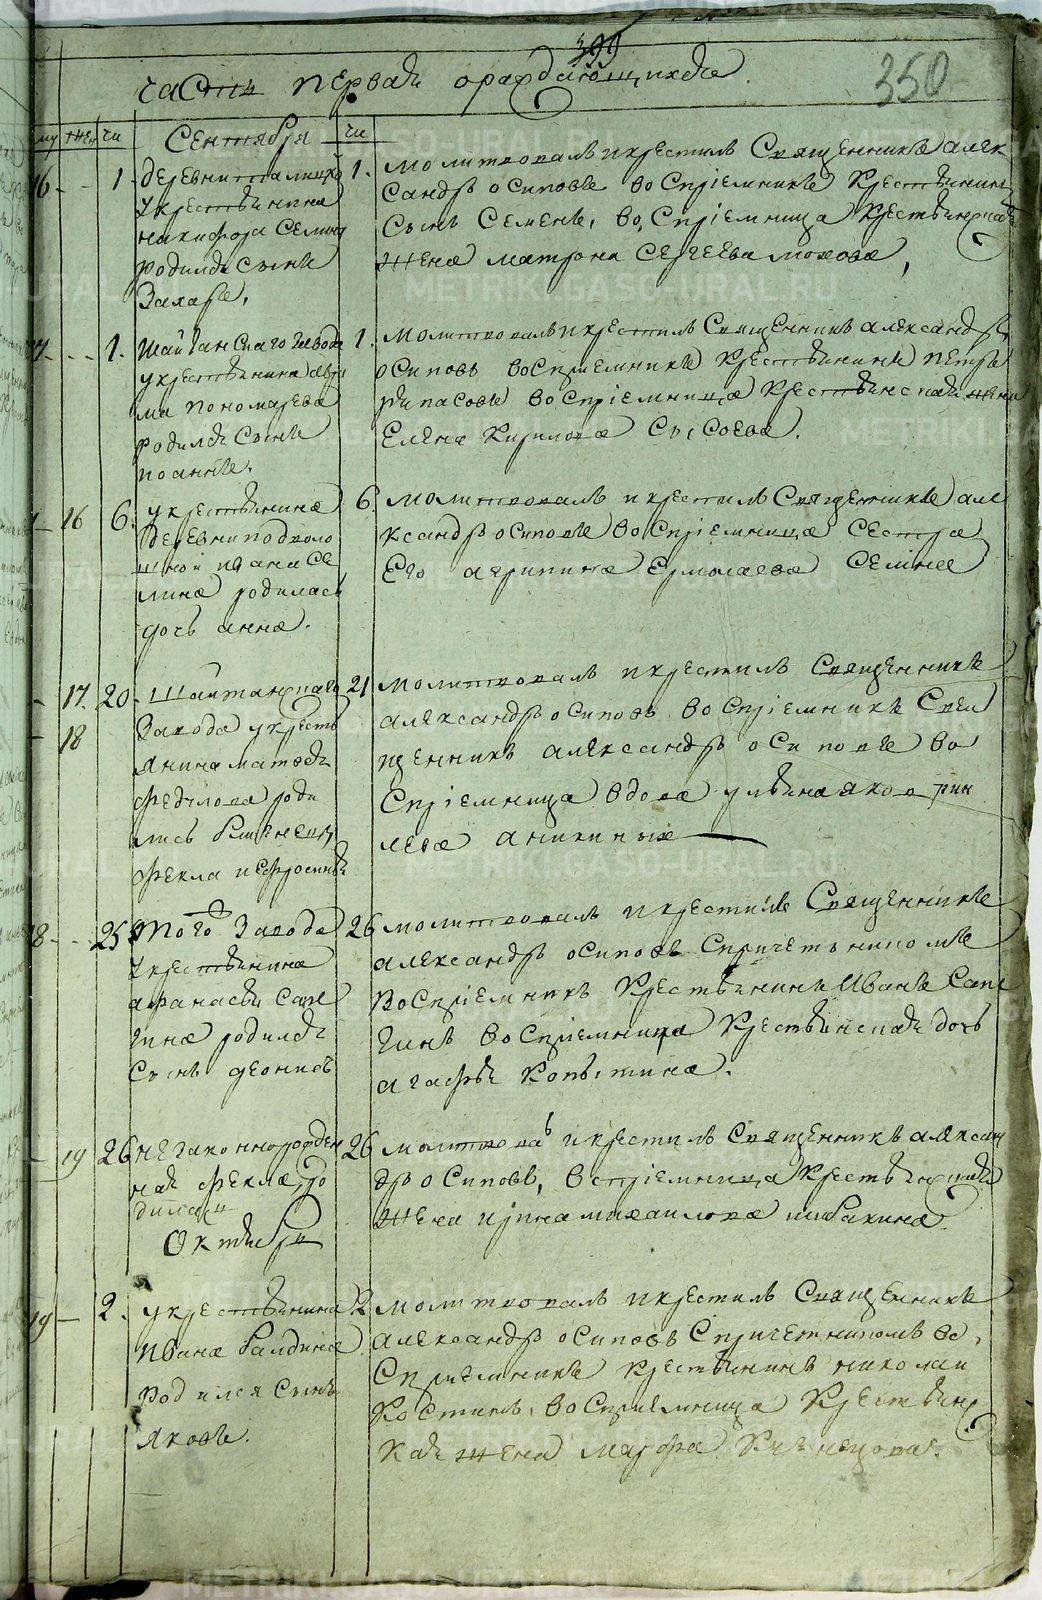 399
350
часть первая о раждающихся
му жен чи Сентября чи
16 - 1. деревни
у крестьянина
Никифора Семина
родился сынъ
Захаръ.
1. молитвовалъ и крестилъ Священникъ Алек
сандръ Осиповъ воспріемникъ крестьянинъ
Сынъ Семенъ, воспріемница крестьянская
жена матрона Сергеева мохова,
17 - - 1. Шайтанскаго завода
у крестьянина
ма пономарева
родился сынъ
1. молитвовалъ и крестилъ Священникъ Александръ
Осиповъ воспріемникъ крестьянинъ петръ
воспріемница крестьянская жена
Елена Кирилова Сысоева.
- 16 6. у крестьянина
деревни подволо
шной ивана Се
мина родилась
дочь анна.
6. молитвовалъ и крестилъ Священникъ але
ксандръ Осиповъ воспріемница сестра
Его агрипина Ермолаева Семина
- 17 20. Шайтанскаго
- 18 завода у кресть
янина матвея
федулова роди
лись близнецы,
фекла и ефросинья
21 молитвовалъ и крестилъ Священникъ
александръ осиповъ воспріемникъ Свя
щенникъ александръ осиповъ во
спріемница вдова ульяна
аникиныхъ
18 - - 25 Того завода
у крестьянина
афанасья Сапе
гина родился
Сынъ деонисъ
26 молитвовалъ и крестилъ Священникъ
александръ осиповъ Спричетникомъ
Воспріемникъ Крестьянинъ Иванъ Сапе
гинъ воспріемница Крестьянская дочь
агафья Копытина.
- 19 26 незаконнорожден
ная фекла ро
дилась
26 молитвова и крестилъ Священникъ алексан
дръ осиповъ, воспріемница крестьянская
жена ирина михаилова шибакина.
Октября
19 - 2. у крестьянина
ивана балдина
родился Сынъ
яковъ.
2 молитвовалъ и крестилъ Священникъ
александръ осиповъ Спричетникомъ во
спріемникъ крестьянинъ николаи
Костинъ, воспріемница Крестьянс
кая жена марфа Кузнецова.
METRIKI.GASO-URAL.RU